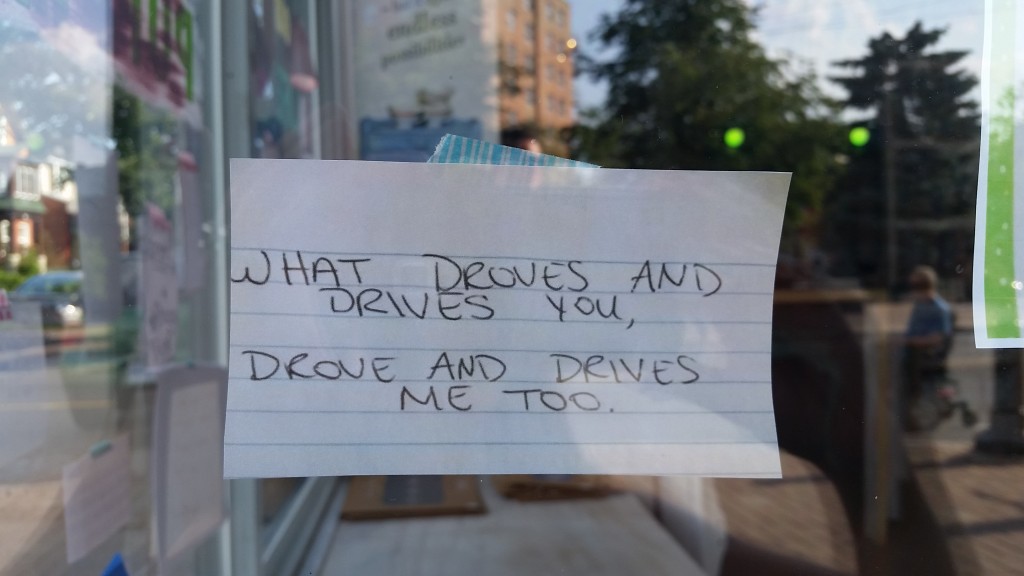 WHAT DROVES AND
DRIVES YOU,
DROVE AND DRIVES
ME TOO.